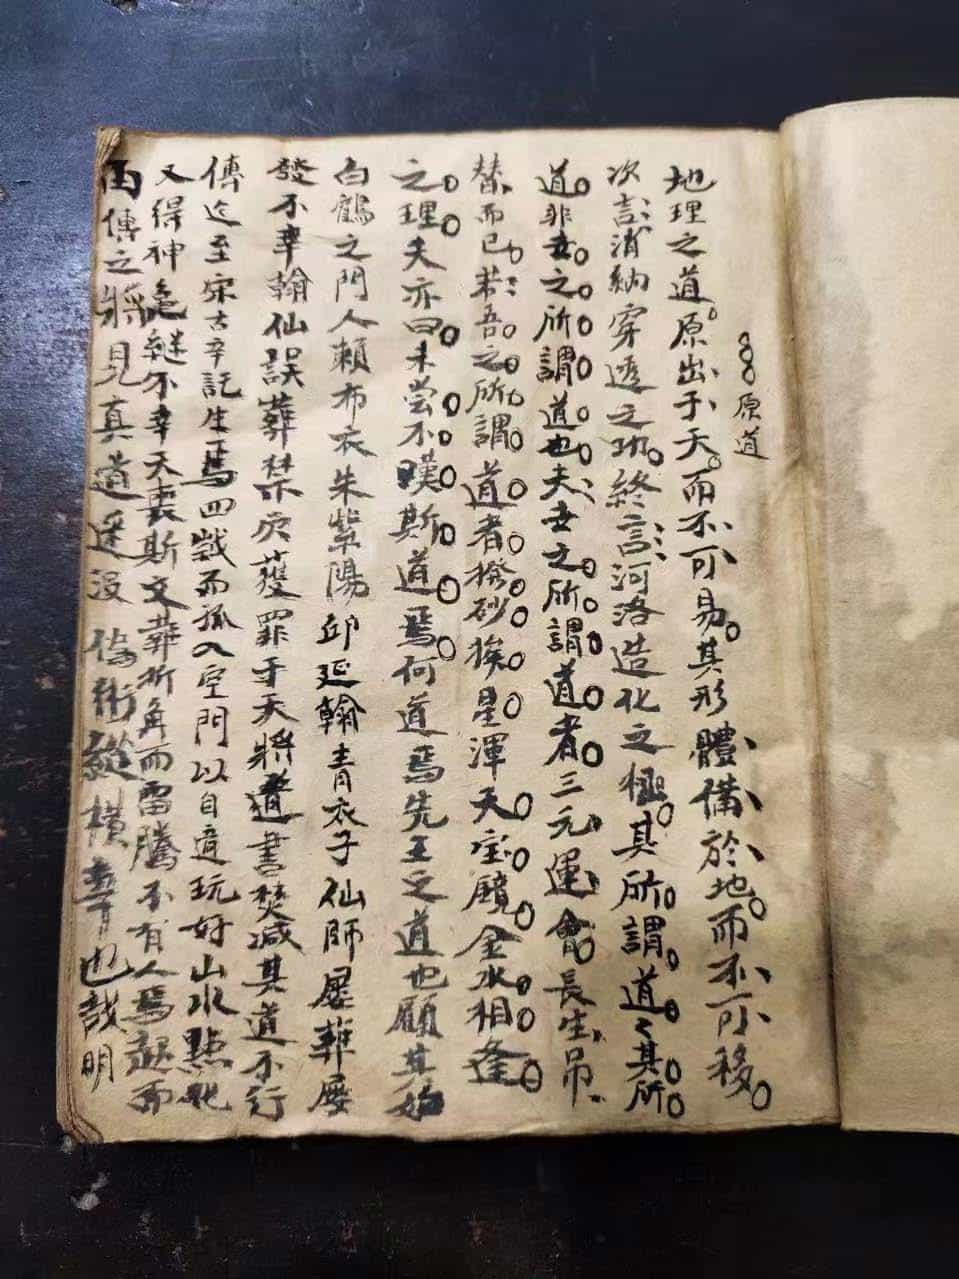 原道
地理之道原出于天而不可易其形體備於地而不可移
次言消納穿透之功終言河洛造化之極其所謂道々其所
道非世之所謂道也夫世之所謂道者三元運會長生吊
替而已若吾之所謂道者撥砂挨星渾天宝鏡金水相逢
之理夫亦曰未尝不嘆斯道焉何道焉先王之道也顧其始
白鶴之門人賴布衣朱紫陽邱延翰青衣子仙師屢葬屢
發不幸翰仙誤葬禁穴獲罪于天將遺書焚滅其道不行
傳迄至宋吉辛託生焉四歲而孤入空門以自適玩好山水點化
又得神龟継不幸天喪斯文葬折角而雷騰不有人焉起而
傳之將見真道遂没偽術縱橫也哉明